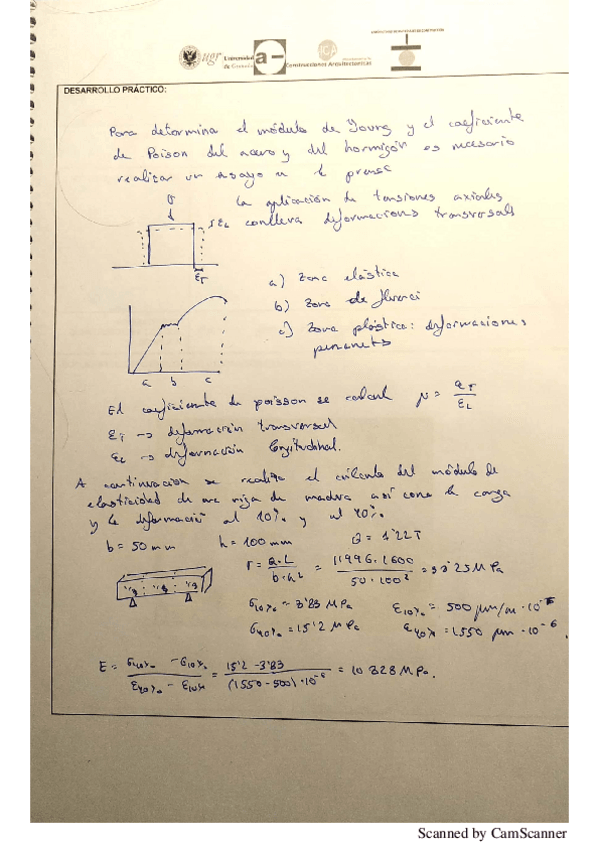 ugr
Universidad
de Granada
a-
Construcciones Arquitectónicas
DESARROLLO PRÁCTICO:
Para determina el módulo de Young y el coeficiente
de Poison del acero y del hormigón es necesario
realizar un ensayo en la prensa
σ
la aplicación de tensiones axiales
εL conlleva deformaciones transversals
εT
a) Zona elástica
b) Zona de fluenci
c) Zona plástica: deformaciones
a b c
El coeficiente de poisson se calcul μ = εT / εL
εT -> deformación transversal
εL -> deformación longitudinal.
A continuación se realiza el cálculo del módulo de
elasticidad de una viga de madera así como la carga
y la deformació al 10% y al 40%.
b = 50 mm h = 100 mm Q = 1'22T
σ = Q·L / b·h² = 11996·1600 / 50·100² = 38'25 MPa
σ10% = 3'83 MPa ε10% = 500 μm/m·10⁻⁶
σ40% = 15'2 MPa ε40% = 1550 μm·10⁻⁶.
E = σ40% - σ10% / ε40% - ε10% = 15'2 - 3'83 / (1550 - 500)·10⁻⁶ = 10 828 MPa.
Scanned by CamScanner